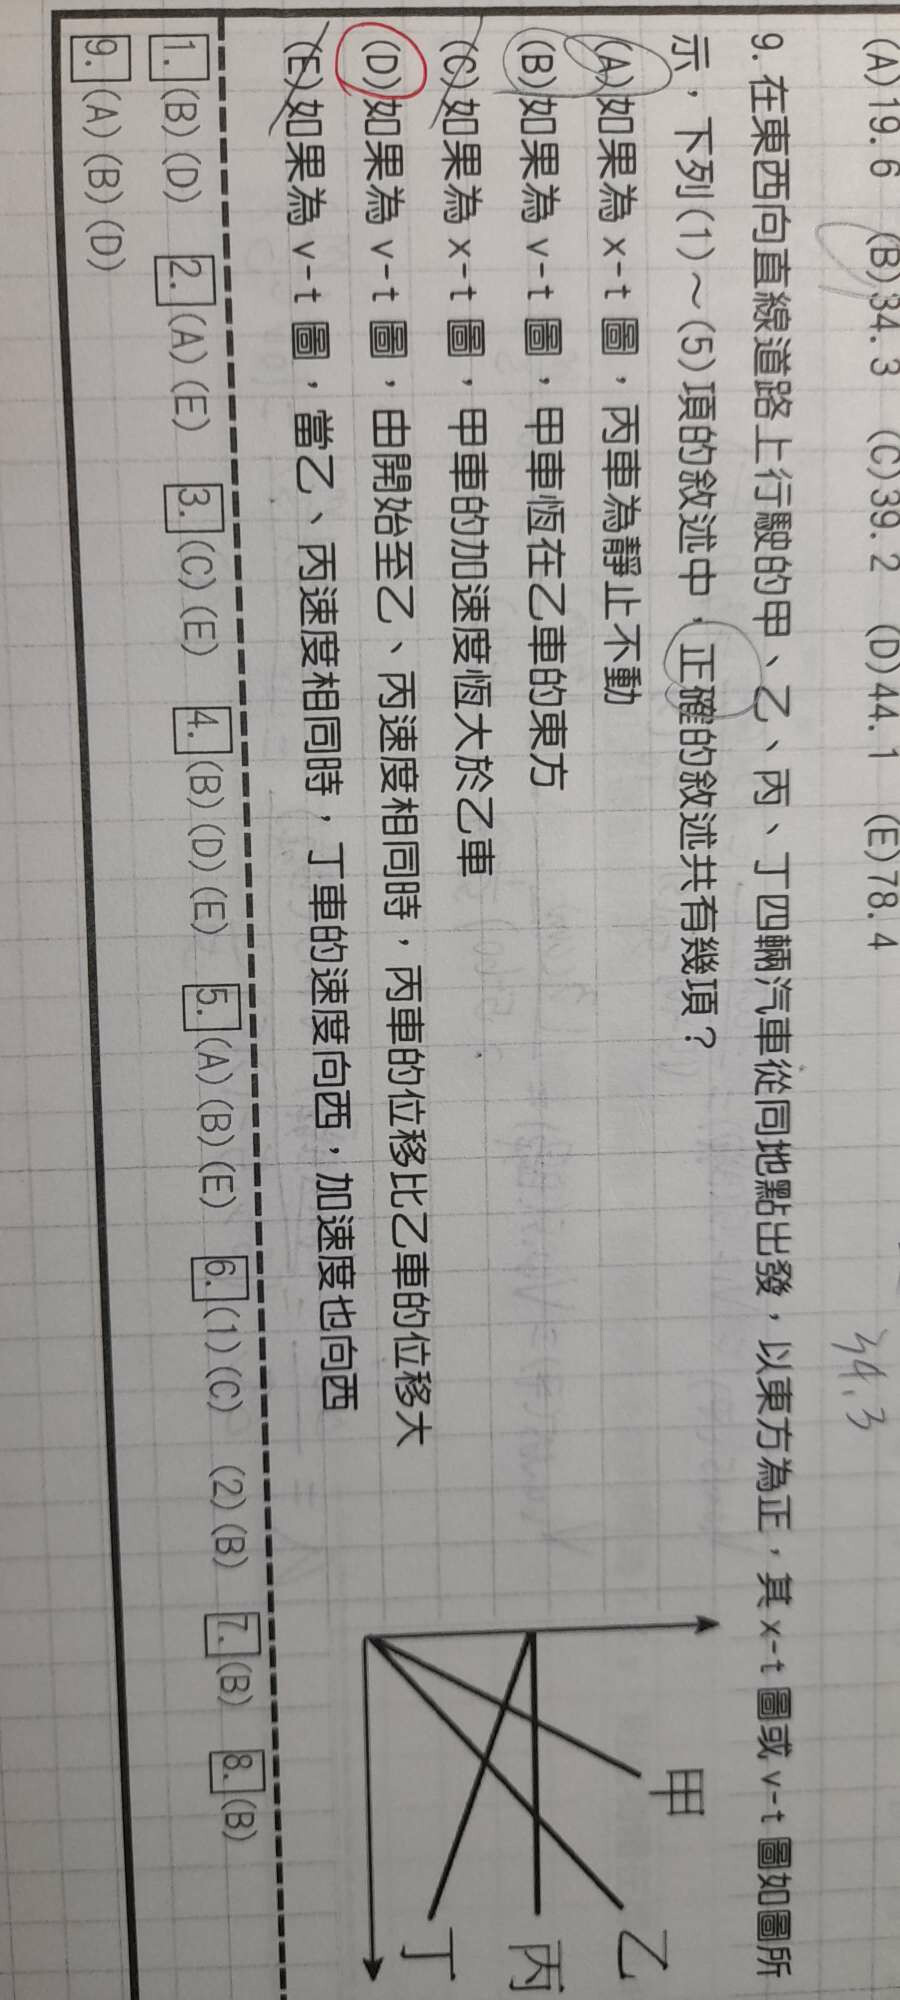 (A)19.6 (B)34.3 (C)39.2 (D)44.1 (E)78.4
34.3
9. 在東西向直線道路上行駛的甲、乙、丙、丁四輛汽車從同地點出發，以東方為正，其 x-t 圖或 v-t 圖如圖所
示，下列(1)～(5)項的敘述中，正確的敘述共有幾項？
(A)如果為 x-t 圖，丙車為靜止不動
(B)如果為 v-t 圖，甲車恆在乙車的東方
(C)如果為 x-t 圖，甲車的加速度恆大於乙車
(D)如果為 v-t 圖，由開始至乙、丙速度相同時，丙車的位移比乙車的位移大
(E)如果為 v-t 圖，當乙、丙速度相同時，丁車的速度向西，加速度也向西
甲
乙
丙
丁
1. (B)(D) 2. (A)(E) 3. (C)(E) 4. (B)(D)(E) 5. (A)(B)(E) 6. (1)(C) (2)(B) 7. (B) 8. (B)
9. (A)(B)(D)